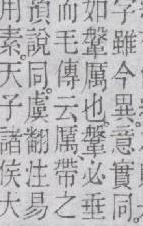 字雖今異意實同。
如鞶厲也。鞶必垂
而毛傳云厲帶之
預說同。虞翻注易
用素。天子諸侯大